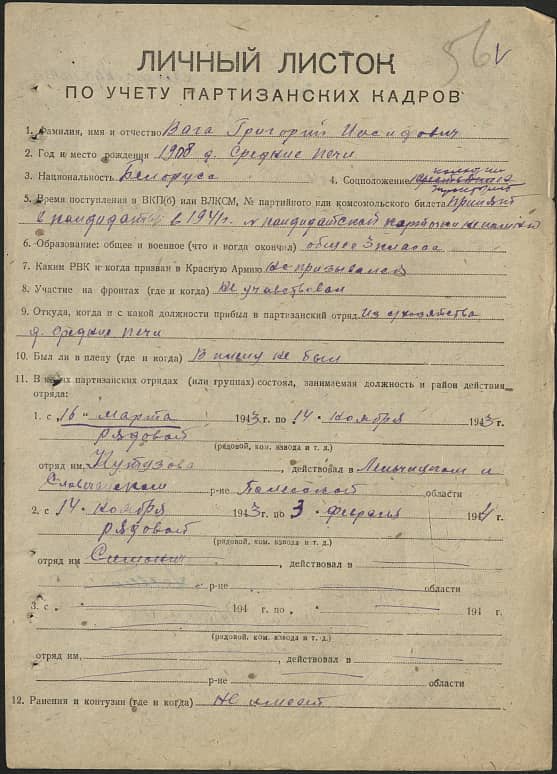 56 v
ЛИЧНЫЙ ЛИСТОК
ПО УЧЕТУ ПАРТИЗАНСКИХ КАДРОВ
1. Фамилия, имя и отчество Вага Григорий Иосифович
2. Год и место рождения 1908 д. Средние Печи
3. Национальность Белорусс 4. Соцположение
5. Время поступления в ВКП(б) или ВЛКСМ, № партийного или комсомольского билета принят
в кандидаты в 1941г. № кандидатской карточки не
6. Образование: общее и военное (что и когда окончил) общее 3 класса
7. Каким РВК и когда призван в Красную Армию Не призывался
8. Участие на фронтах (где и когда) Не участвовал
9. Откуда, когда и с какой должности прибыл в партизанский отряд Из с/хозяйства
д. Средние Печи
10. Был ли в плену (где и когда) В плену не был
11. В каких партизанских отрядах (или группах) состоял, занимаемая должность и район действия
отряда:
1. с 16 - марта 1943г. по 14 - ноября 1943г.
рядовой
(рядовой, ком. взвода и т. д.)
отряд им. Кутузова, действовал в Лельчицком и
Словечанском р-не Полесской области
2. с 14 - ноября 1943г. по 3 - февраля 1944г.
рядовой
(рядовой, ком. взвода и т. д.)
отряд им, действовал в
р-не области
3. с 194 г. по 194 г.
(рядовой, ком. взвода и т. д.)
отряд им, действовал в
р-не области
12. Ранения и контузии (где и когда) Не имеет